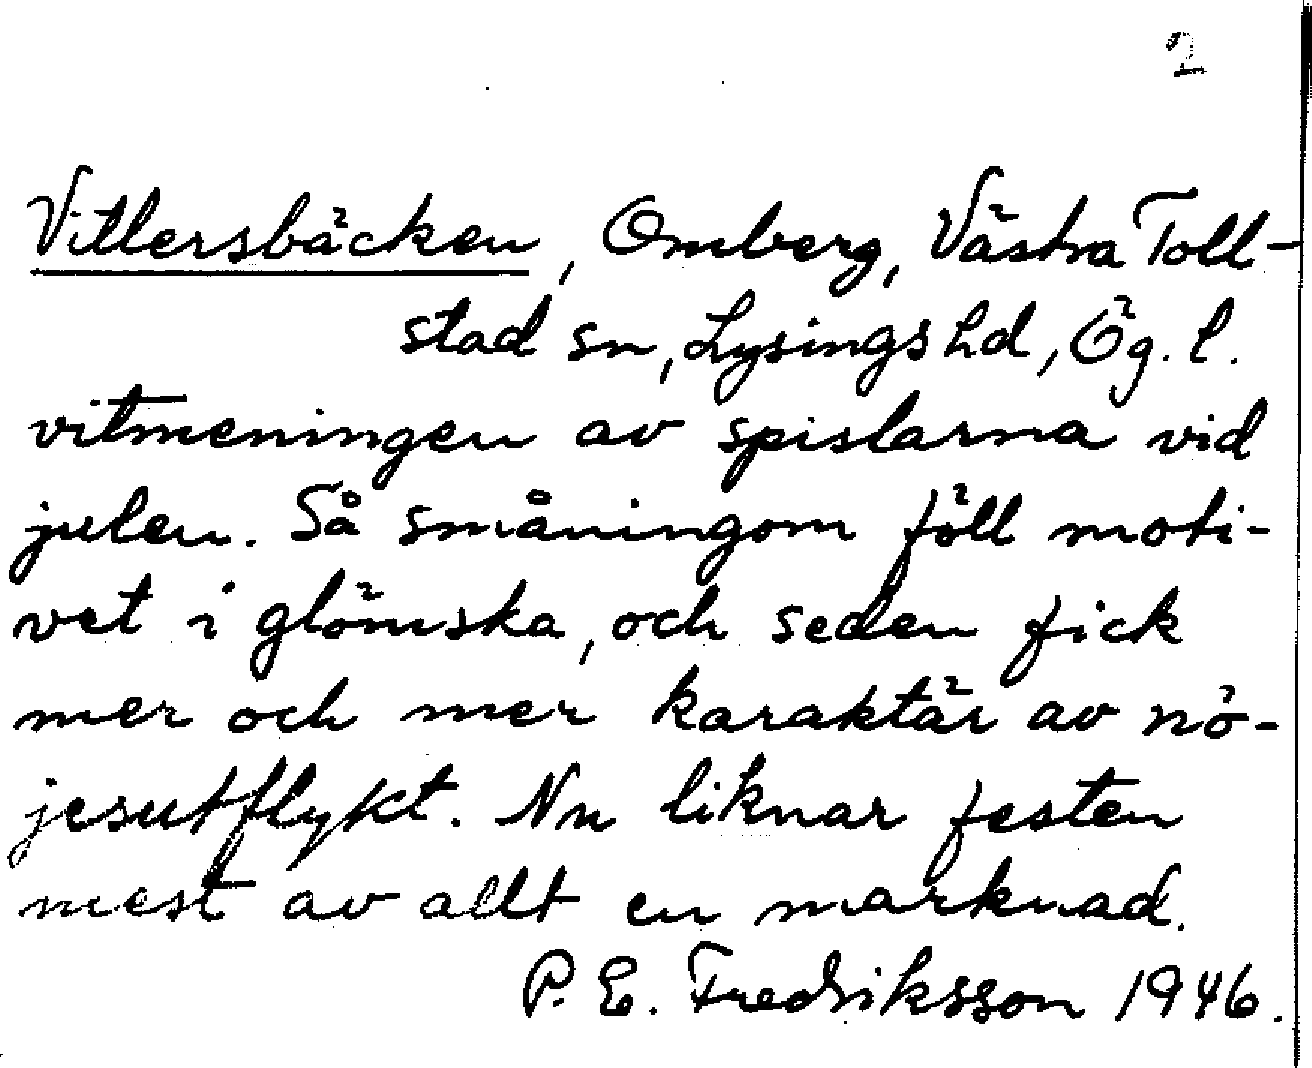 2
Vitlersbäcken, Omberg, Västra Toll-
stad sn, Lysings hd, Ög. l.
vitmeningen av spislarna vid
julen. Så småningom föll moti-
vet i glömska, och seden fick
mer och mer karaktär av nö-
jesutflykt. Nu liknar festen
mest av allt en marknad.
P. E. Fredriksson 1946.